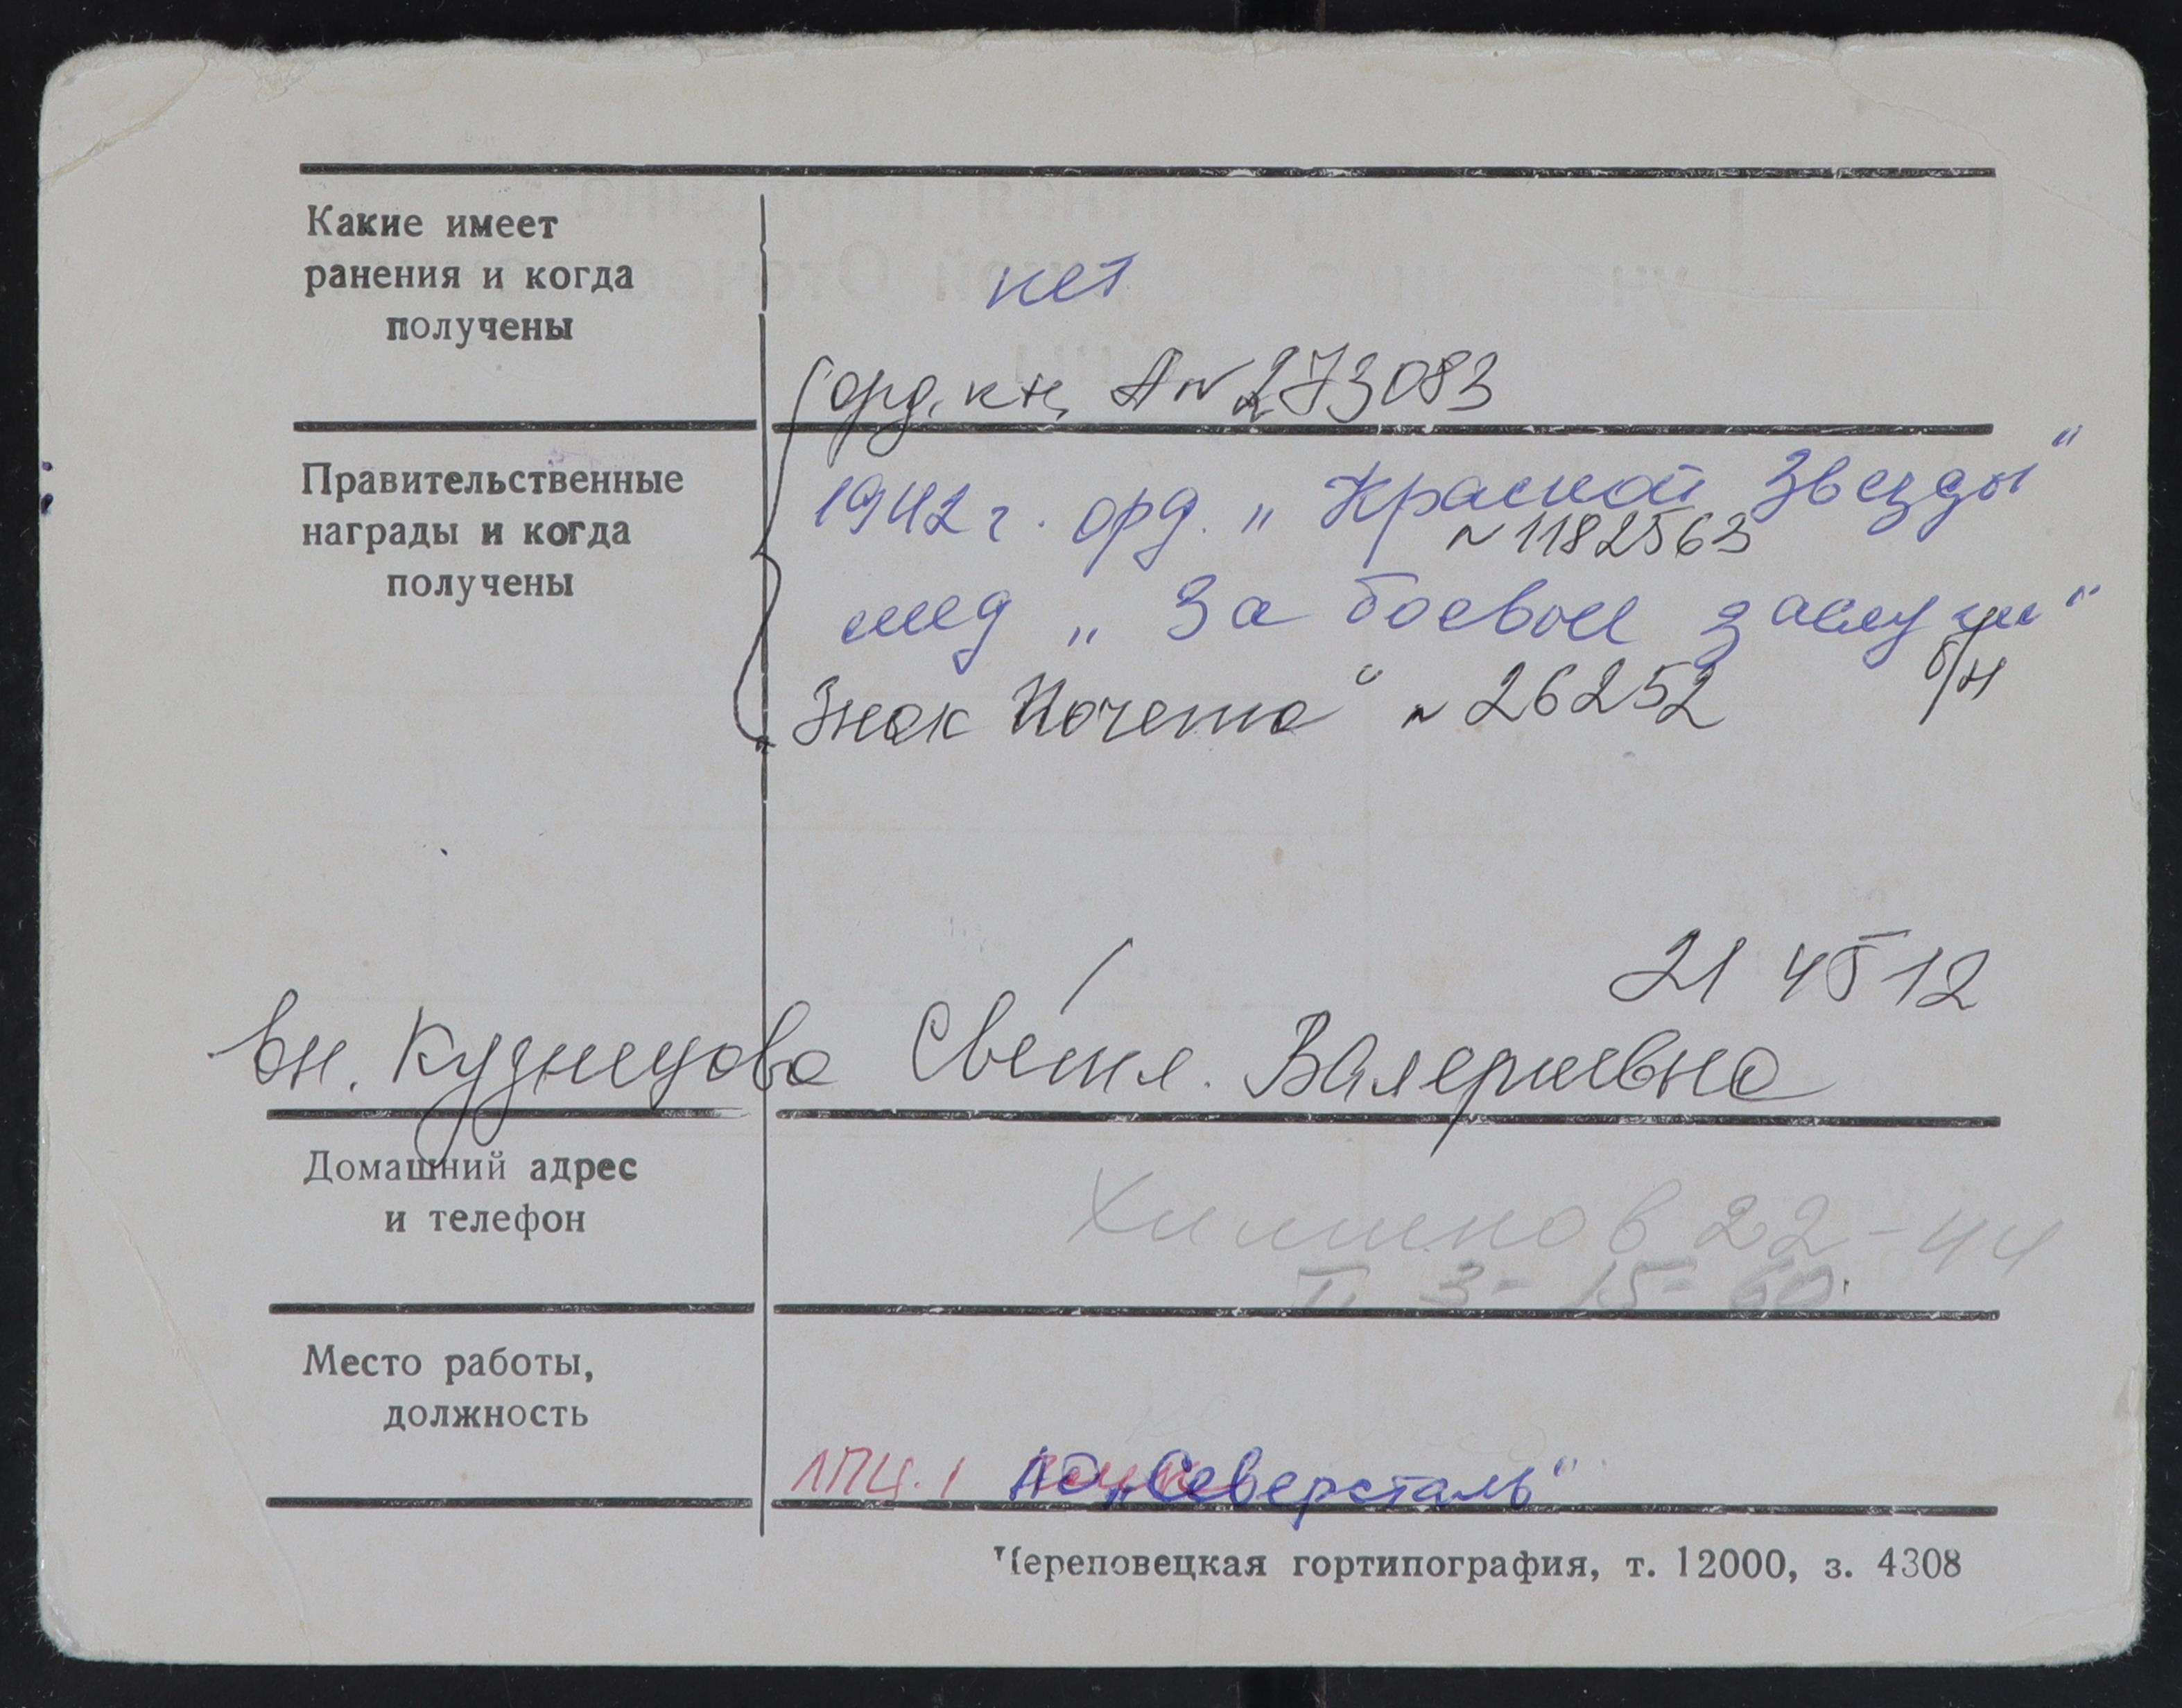 Какие имеет
ранения и когда
получены
нет
орд. кн. А № 273083
Правительственные
награды и когда
получены
1942 г. орд. „Красной Звезды"
№ 1182563
мед „За боевые заслуги"
б/н
„Знак Почета" № 26252
21 45 12
вн. Кузнецова Светл. Валериевна
Домашний адрес
и телефон
Химиков 22-44
т. 3-15-60.
Место работы,
должность
ЛПЦ.1 АО „Северсталь"
Череповецкая гортипография, т. 12000, з. 4308